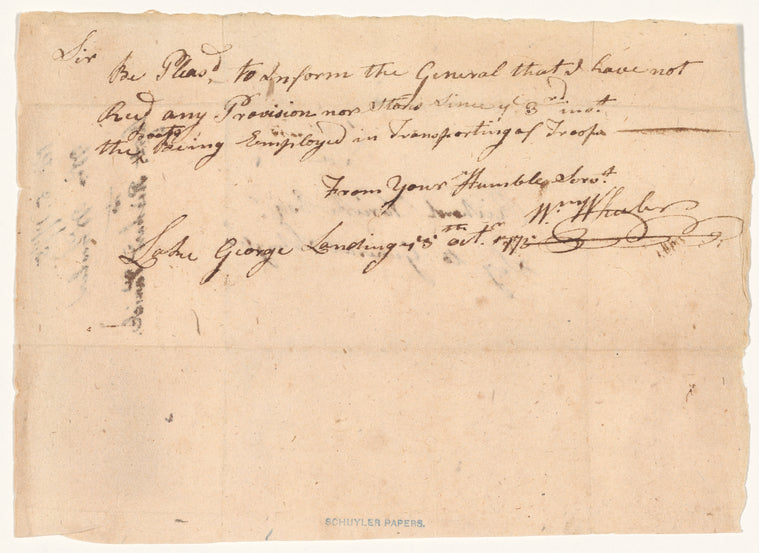 Sir
Be Pleasd to Inform the General that I have not
Recd any Provision nor Stores Since ye 3rd inst.
the Being Employed in Transporting of Troops
From Your Humble Servt
Wm Wheeler
Lake George Landing 13th octr. 1775
SCHUYLER PAPERS.